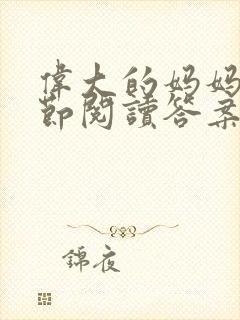 偉大的妈妈
節閱讀答案
錦夜